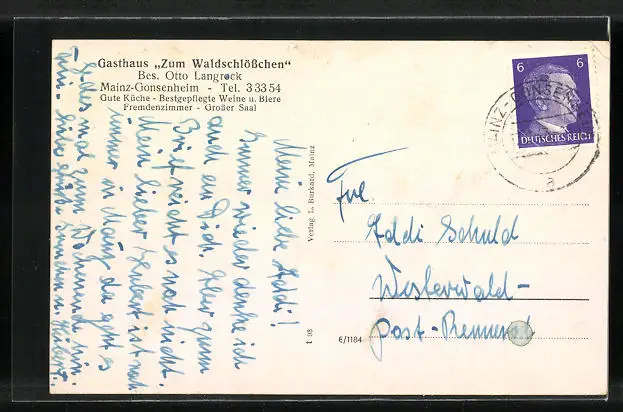 Gasthaus „Zum Waldschlößchen“
Bes. Otto Langrock
Mainz-Gonsenheim - Tel. 33354
Gute Küche - Bestgepflegte Weine u. Biere
Fremdenzimmer - Großer Saal
Meine liebe Addi!
Immer wieder denke ich
auch an Dich. Aber zum
Brief reicht es noch nicht.
Mein lieber Hubert ist noch
immer in Mainz, da geht es
jedes mal zum
hin. Für Dich u.
Verlag L. Burkard, Mainz
t 98
6/1184
6 6
DEUTSCHES REICH
MAINZ-GONSENHEIM
a
Frl.
Addi Schuld
Westerwald-
Post-